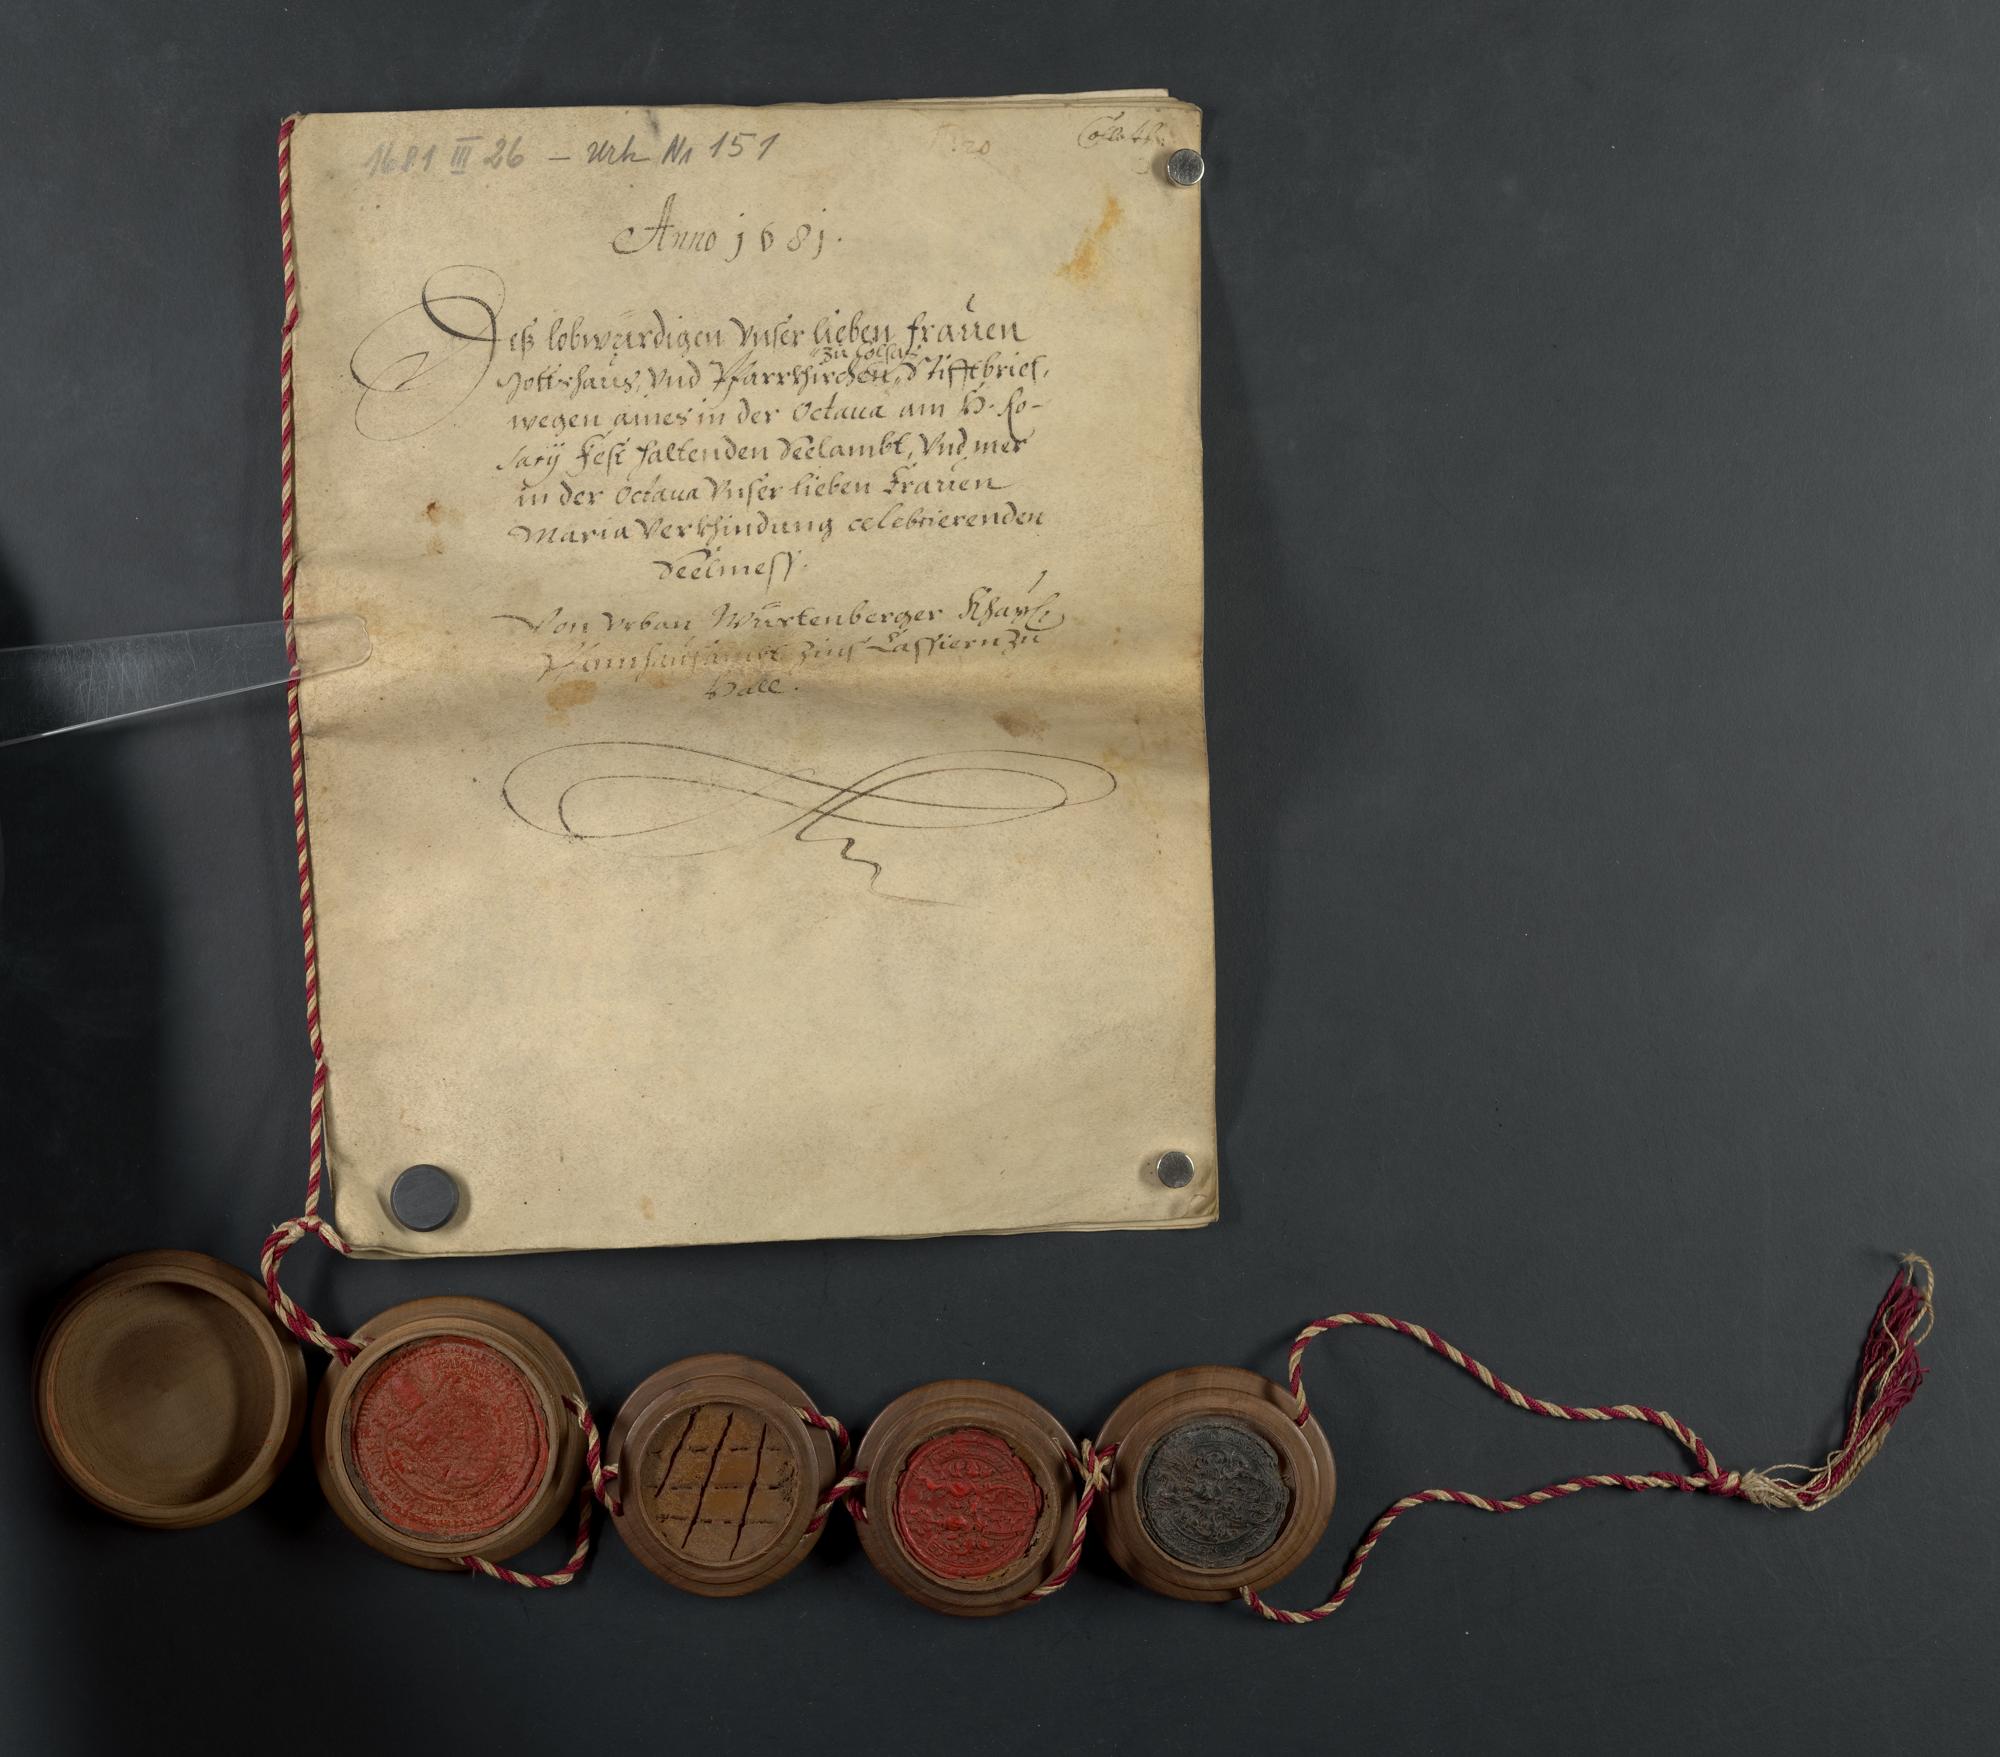 1681 III 26 – Urk Nr 151
Anno 1681.
Deß lobwürdigen Vnser lieben Frauen
Gottshaus, Vnd Pfarrkhirchen, Stifftbrief,
wegen aines in der Octaua am H. Ro-
sary Fest haltenden Seelambt, Vnd mer
in der Octaua Vnser lieben Frauen
Maria Verkhindung celebrierenden
Seelmess.
Von Vrban Würtenberger Khay:
Pfannhausambt Cassiern zu
Hall.